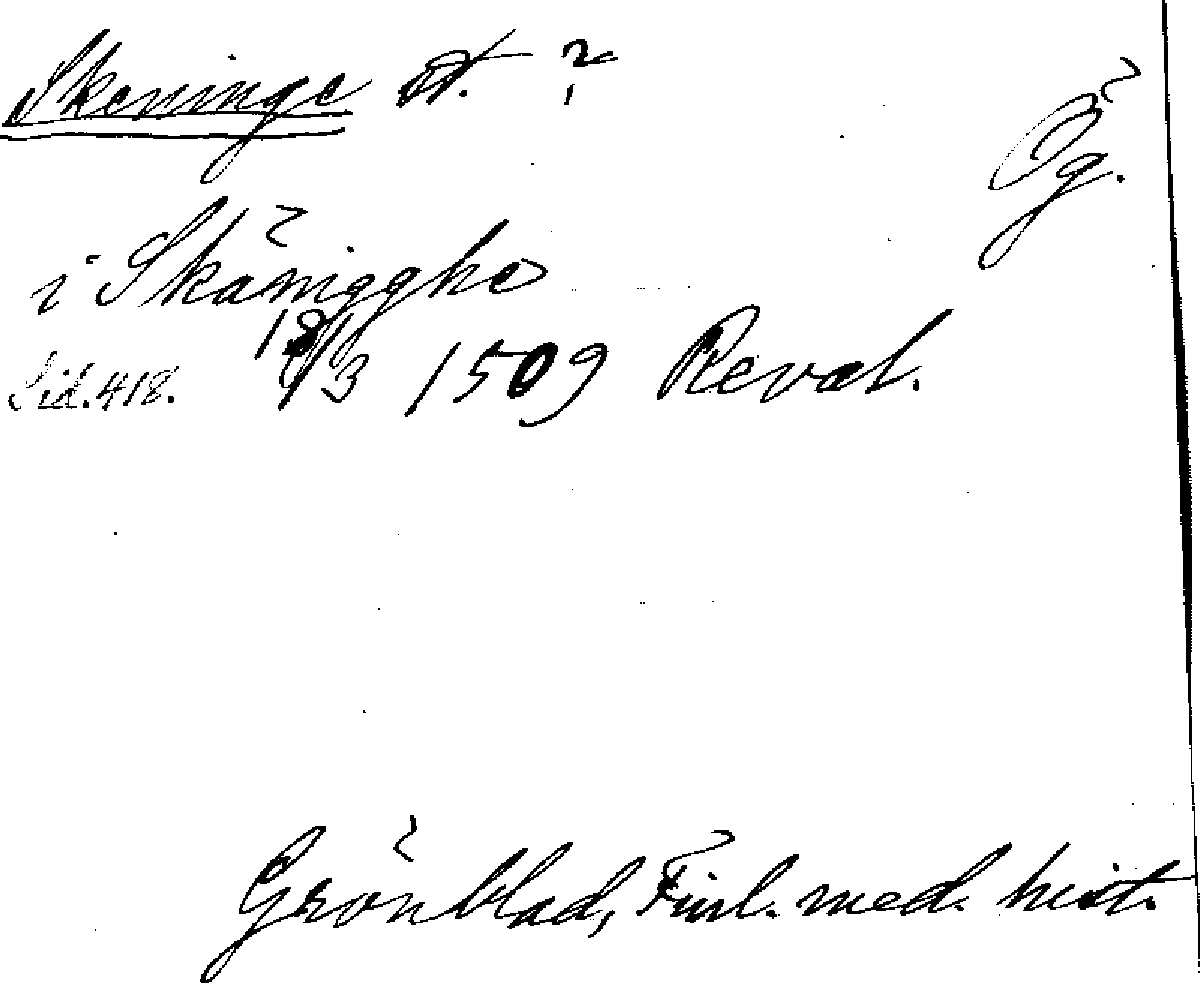 Skeninge st. ?
Ög.
i Skänigghe
Sid. 418. 18/3 1509 Reval.
Grönblad, Finl. med. hist.